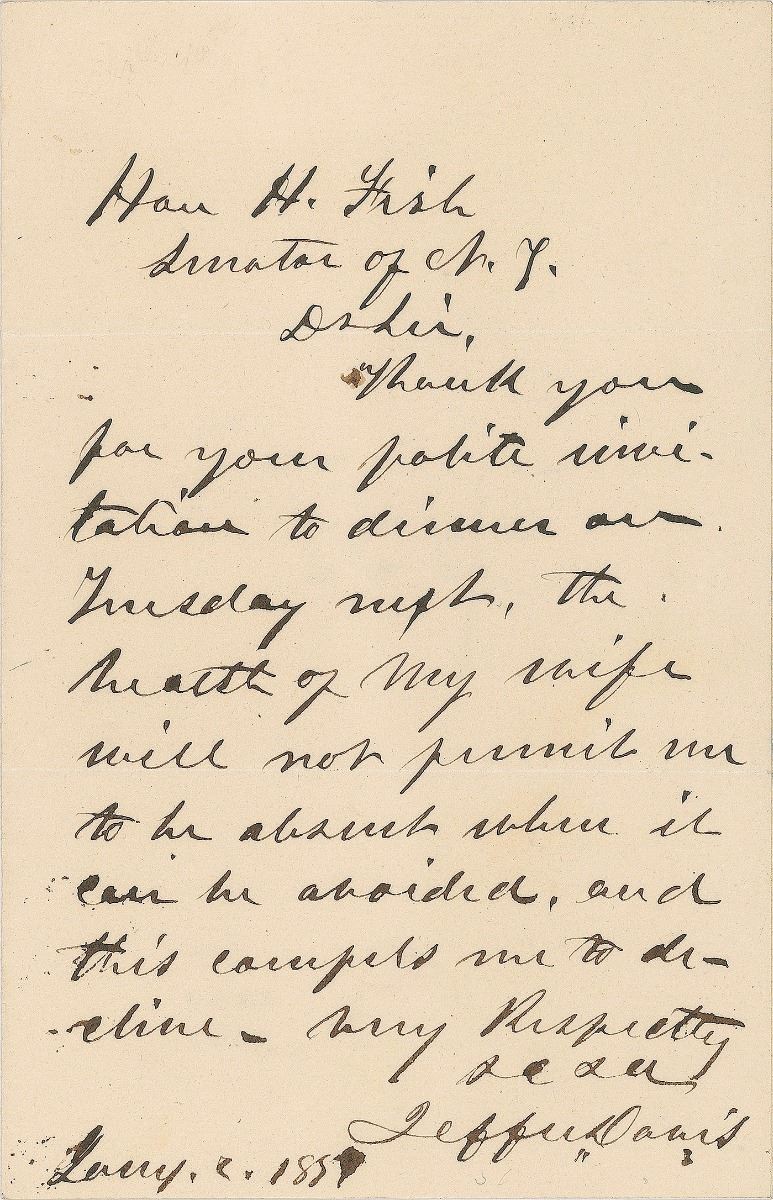 Hon H. Fish
Senator of N. Y.
Dr Sir,
Thank you
for your polite invi-
tation to dinner on
Tuesday next, the
health of my wife
will not permit me
to be absent when it
can be avoided, and
this compels me to de-
cline - Very Respectty
Jeffn Davis
Jany. 2. 185